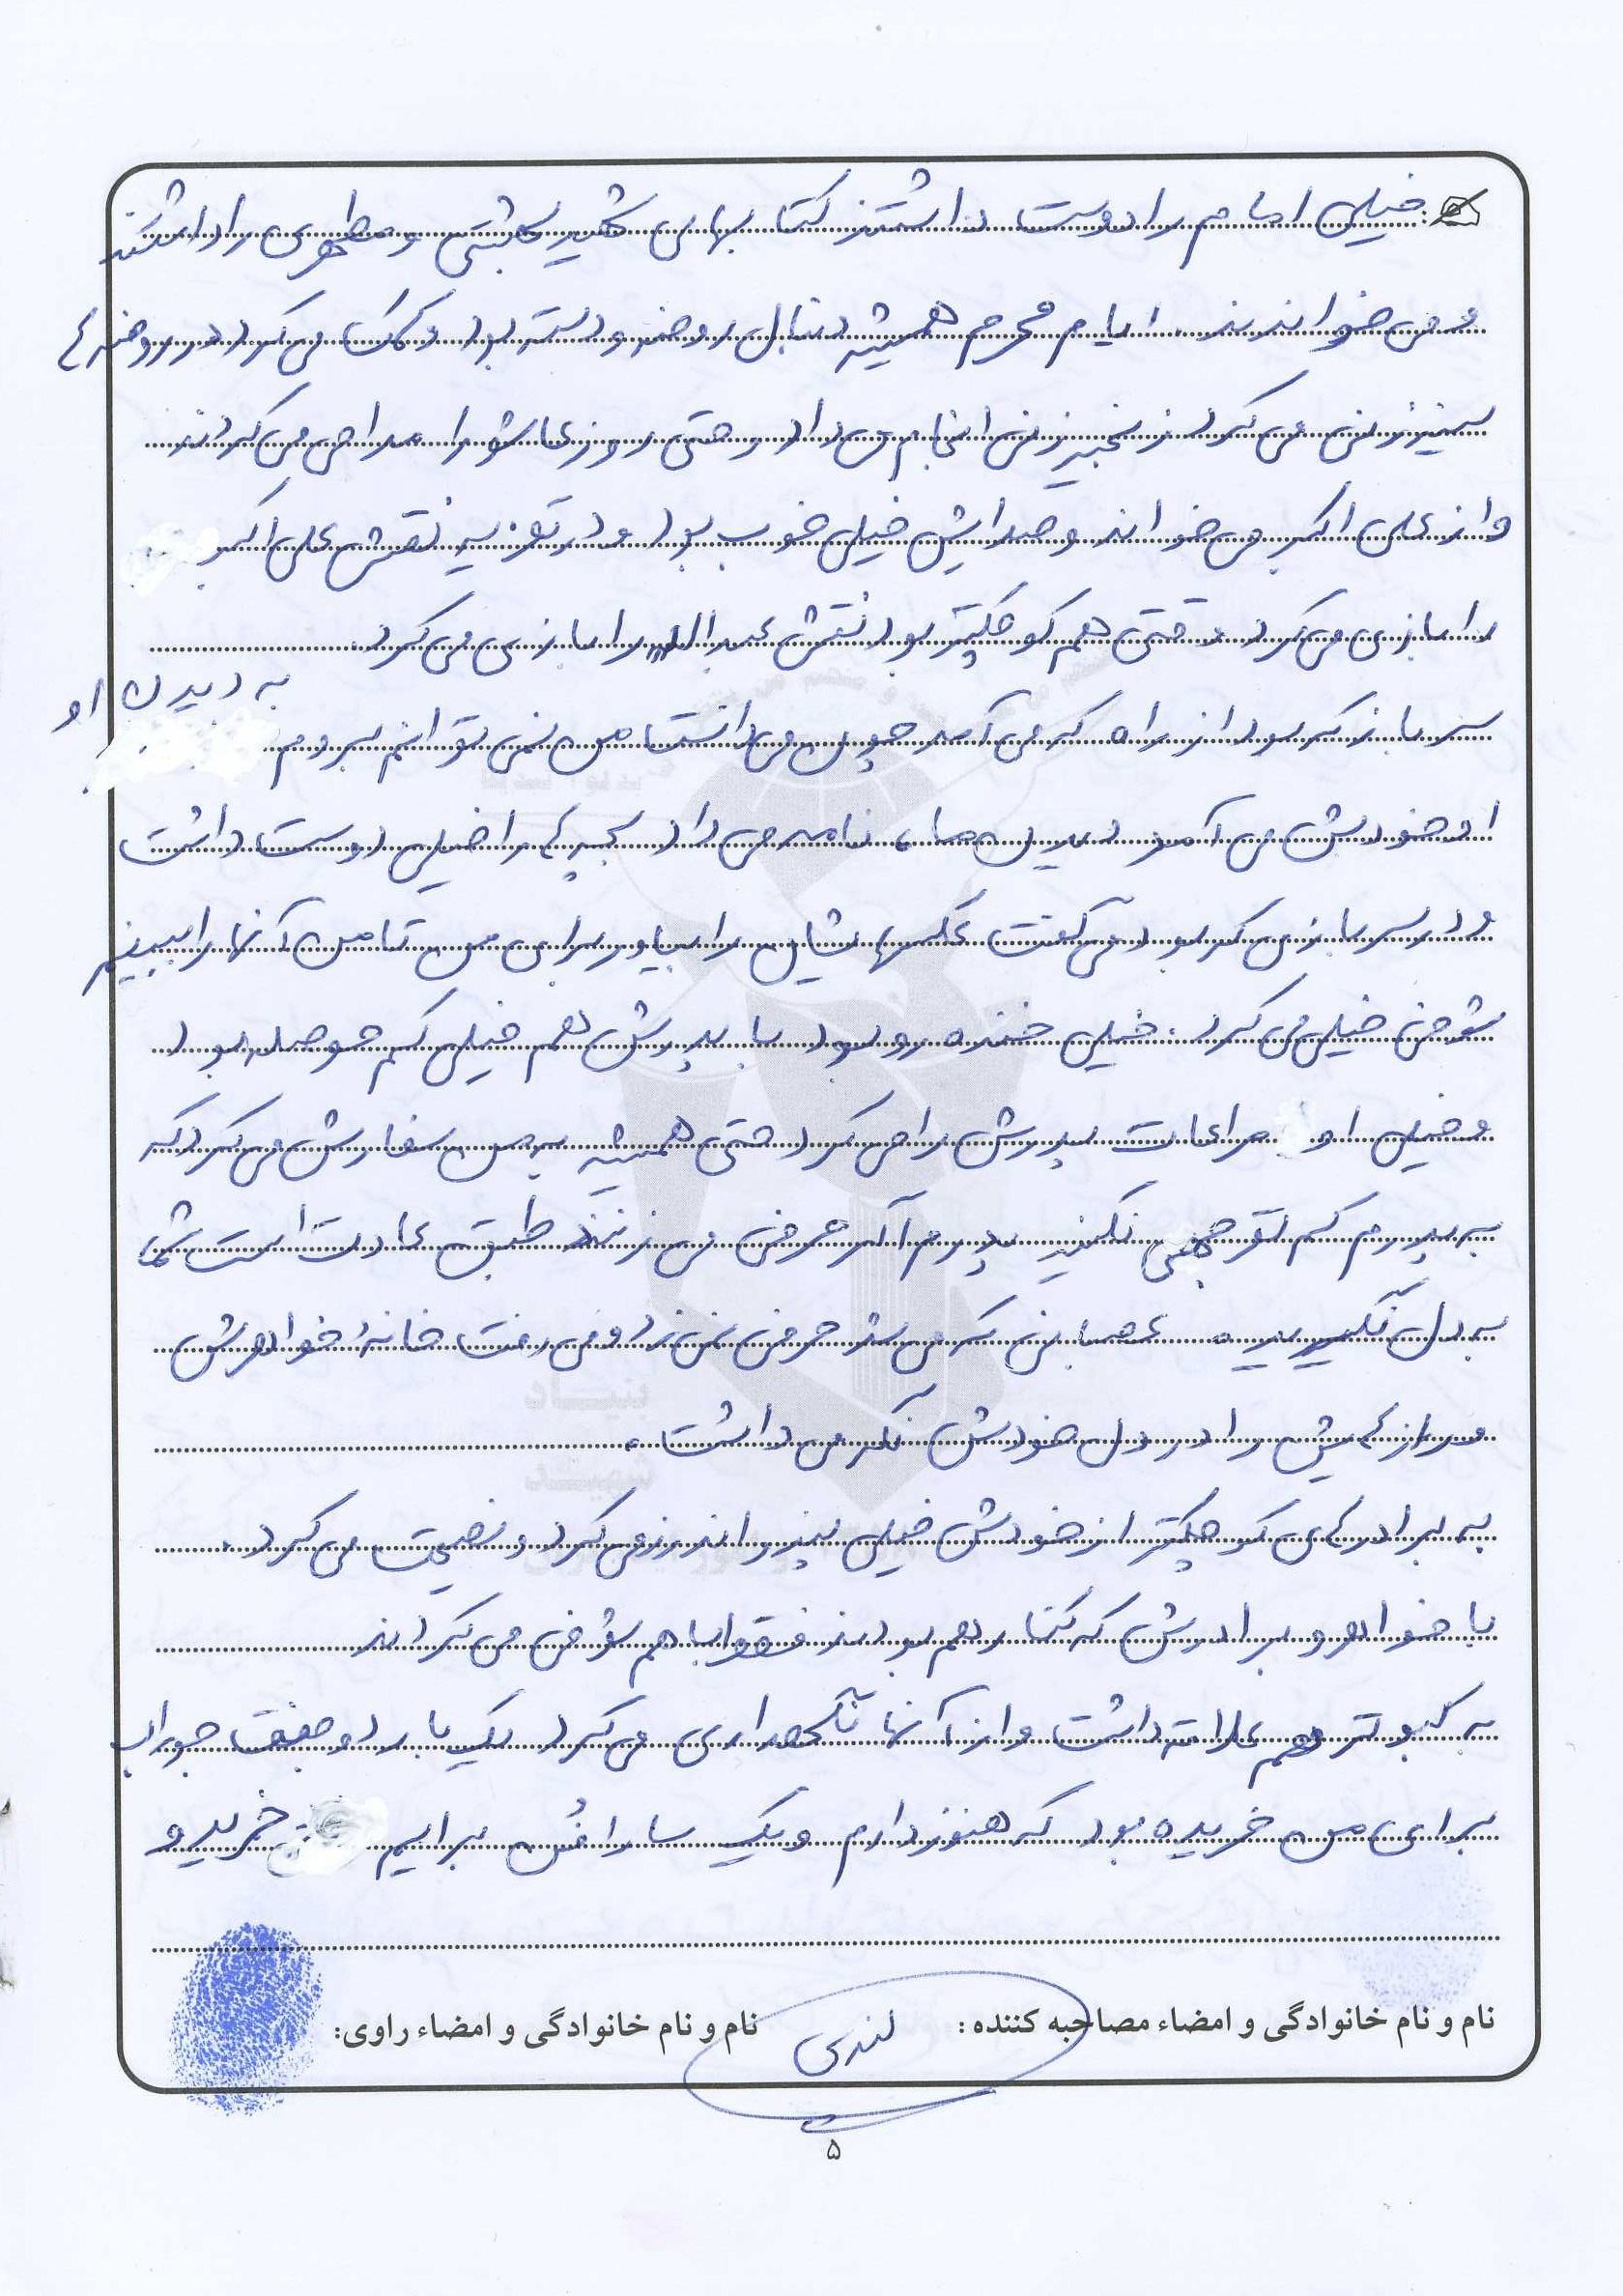 خیلی امام را دوست داشتند کتابهای شهید بهشتی و مطهری را داشتند
و می خواندند. ایام محرم همیشه دنبال روضه و دسته بود و کمک می کرد در روضه ها
سینه زنی می کرد زنجیر زنی انجام می داد و حتی روز عاشورا مداحی می کردند
و از علی اکبر می خواند و صدایش خیلی خوب بود و در تعزیه نقش علی اکبر
را بازی می کرد وقتی هم کوچکتر بود نقش عبدالله را بازی می کرد.
سرباز که بود از راه که می آمد چون می دانست من نمی توانم بروم به دیدن او
او خودش می آمد دیدن ما، نامه می داد بچه ها را خیلی دوست داشت
و در سربازی که بود می گفت عکسهایشان را بیاور برای من تا من آنها را ببینم
شوخی خیلی می کرد. خیلی خنده رو بود با پدرش هم خیلی کم حوصله بود
و خیلی او مراعات پدرش را می کرد حتی همیشه به من سفارش می کرد که
به پدرم کم توجهی نکنید پدرم اگر حرفی می زنند طبق عادت است شما
به دل نگیرید. عصبانی که می شد حرفی نمی زد و می رفت خانهٔ خواهرش
و راز هایش را در دل خودش نگه می داشت.
به برادرهای کوچکتر از خودش خیلی پند و اندرز می کرد و نصیحت می کرد.
با خواهر و برادرش که کنار هم بودند فقط با هم شوخی می کردند
به کبوتر هم علاقه داشت و از آنها نگهداری می کرد یک بار دو جفت جوراب
برای من خریده بود که هنوز دارم و یک سارافُن برایم خرید و
نام و نام خانوادگی و امضاء مصاحبه کننده :
نام و نام خانوادگی و امضاء راوی:
۵